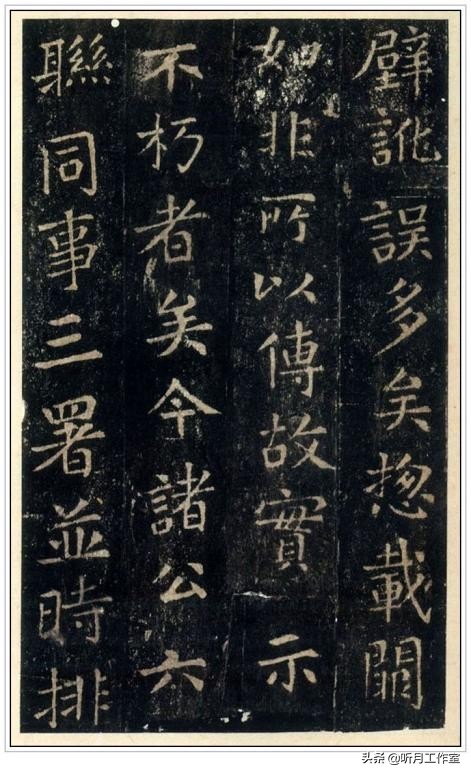 壁訛誤多矣揔載闕
如非所以傳故實示
不朽者矣今諸公六
聯同事三署並時排
头条 @听月工作室